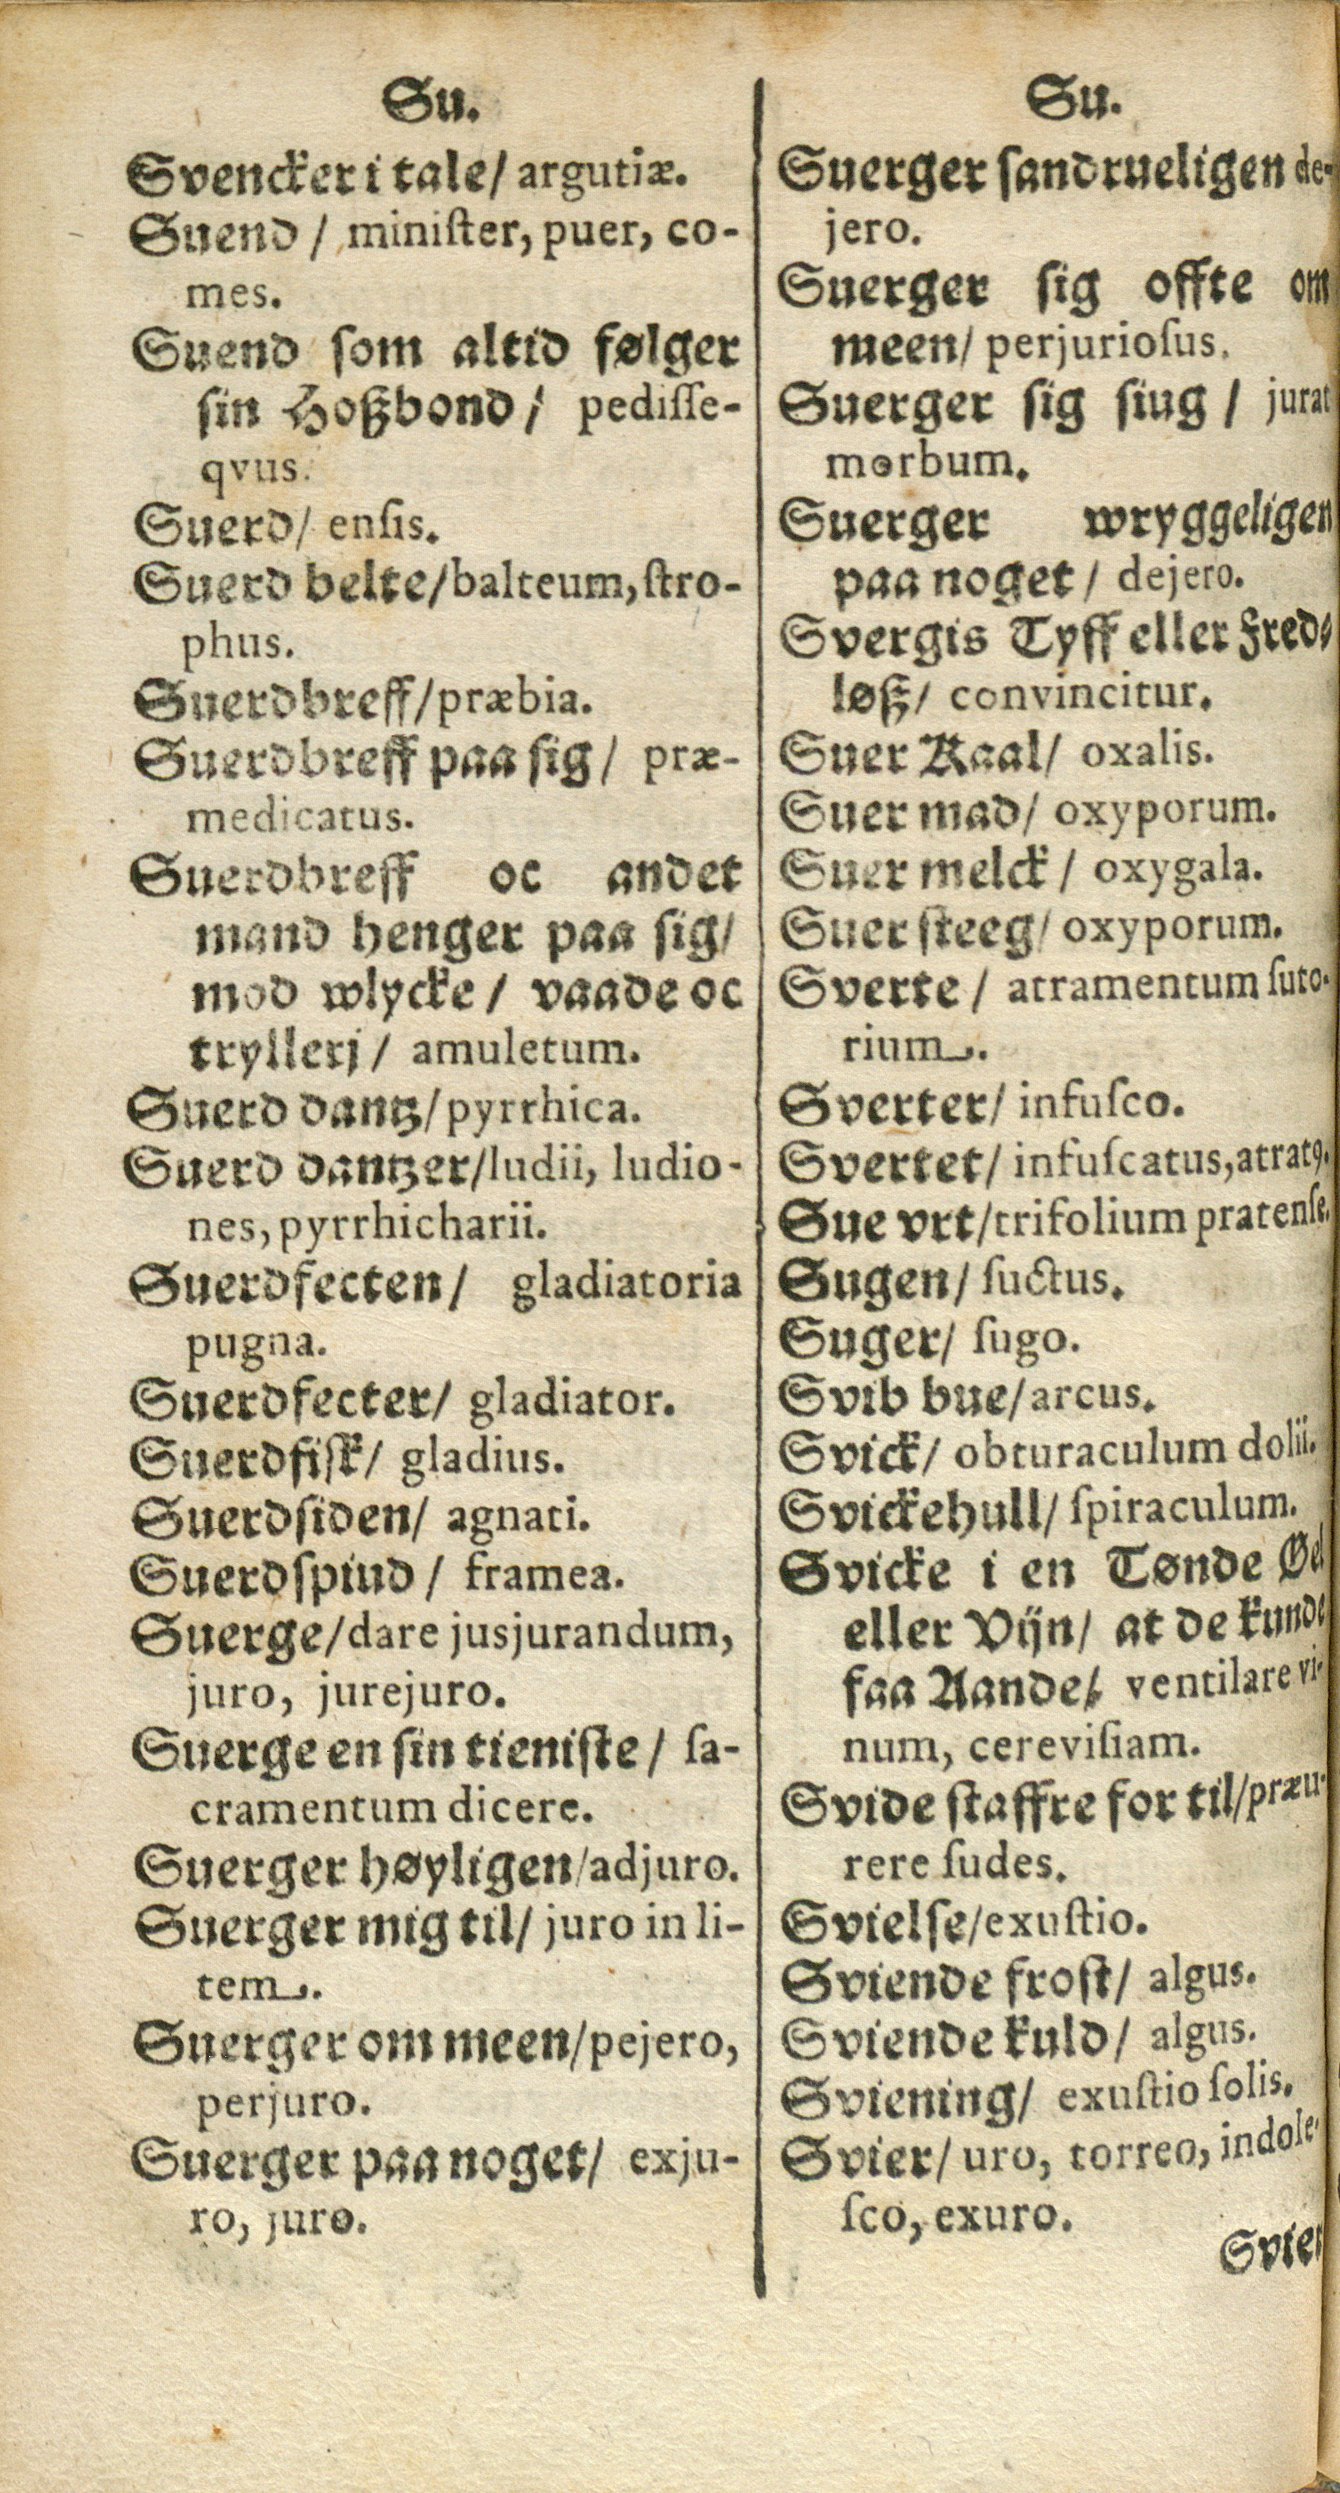 Su.
Svencker i tale/ argutiæ.
Suend / miniſter, puer, co-
mes.
Suend ſom altid følger
ſin Hoßbond / pediſſe-
qvus.
Suerd/ enſis.
Suerd belte/balteum, ſtro-
phus.
Suerdbreff/præbia.
Suerdbreff paa ſig / præ-
medicatus.
Suerdbreff oc andet
mand henger paa ſig/
mod wlycke / vaade oc
trylleri / amuletum.
Suerd dantz/pyrrhica.
Suerd dantzer/ludii, ludio-
nes, pyrrhicharii.
Suerdfecten/ gladiatoria
pugna.
Suerdfecter/ gladiator.
Suerdfiſk/ gladius.
Suerdſiden/ agnati.
Suerdſpiud / framea.
Suerge/dare jusjurandum,
juro, jurejuro.
Suerge en ſin tieniſte / ſa-
cramentum dicere.
Suerger høyligen/adjuro.
Suerger mig til/ juro in li-
tem.
Suerger om meen/pejero,
perjuro.
Suerger paa noget/ exju-
ro, juro.
Su.
Suerger ſandrueligen de-
jero.
Suerger ſig offte om
meen/ perjurioſus.
Suerger ſig ſiug / jurat
morbum.
Suerger wryggeligen
paa noget / dejero.
Svergis Tyff eller Fred-
løß/ convincitur.
Suer Kaal/ oxalis.
Suer mad/ oxyporum.
Suer melck / oxygala.
Suer ſteeg/ oxyporum.
Sverte / atramentum ſuto-
rium.
Sverter/ infuſco.
Svertet/ infuſcatus, atratꝰ.
Sue vrt/trifolium pratenſe.
Sugen/ ſuctus.
Suger/ ſugo.
Svib bue/arcus.
Svick/ obturaculum dolii.
Svickehull/ ſpiraculum.
Svicke i en Tønde Øel
eller Vijn/ at de kunde
faa Aande/ ventilare vi-
num, cereviſiam.
Svide ſtaffre for til/præu-
rere ſudes.
Svielſe/exuſtio.
Sviende froſt/ algus.
Sviende kuld/ algus.
Sviening/ exuſtio ſolis.
Svier/ uro, torreo, indole-
ſco, exuro.
Svier